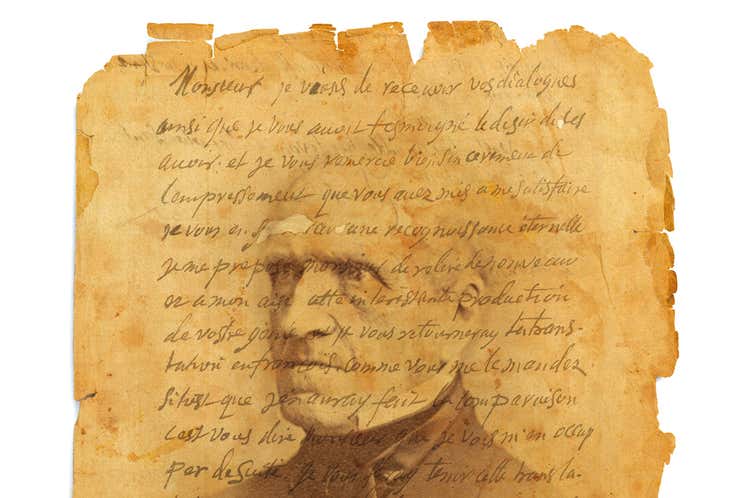 Monsieur je viens de recevoir vos dialogues
ainsi que je vous avoit tesmoigné le desir de les
avoir. et je vous remercie bien sinceremeut de
l'empressement que vous avez mis a me satisfaire
je vous en une recognoissance éternelle
je me propose monsieur de relire de nouveau
et a mon aise cette interéssante production
de vostre genie et je vous retourneray la trans-
lation en françois comme vous me le mandez
sitost que j'en auray fait la comparaison
c'est vous dire monsieur que je vais m'en occup
per de suite. je vous tenir cette transla-